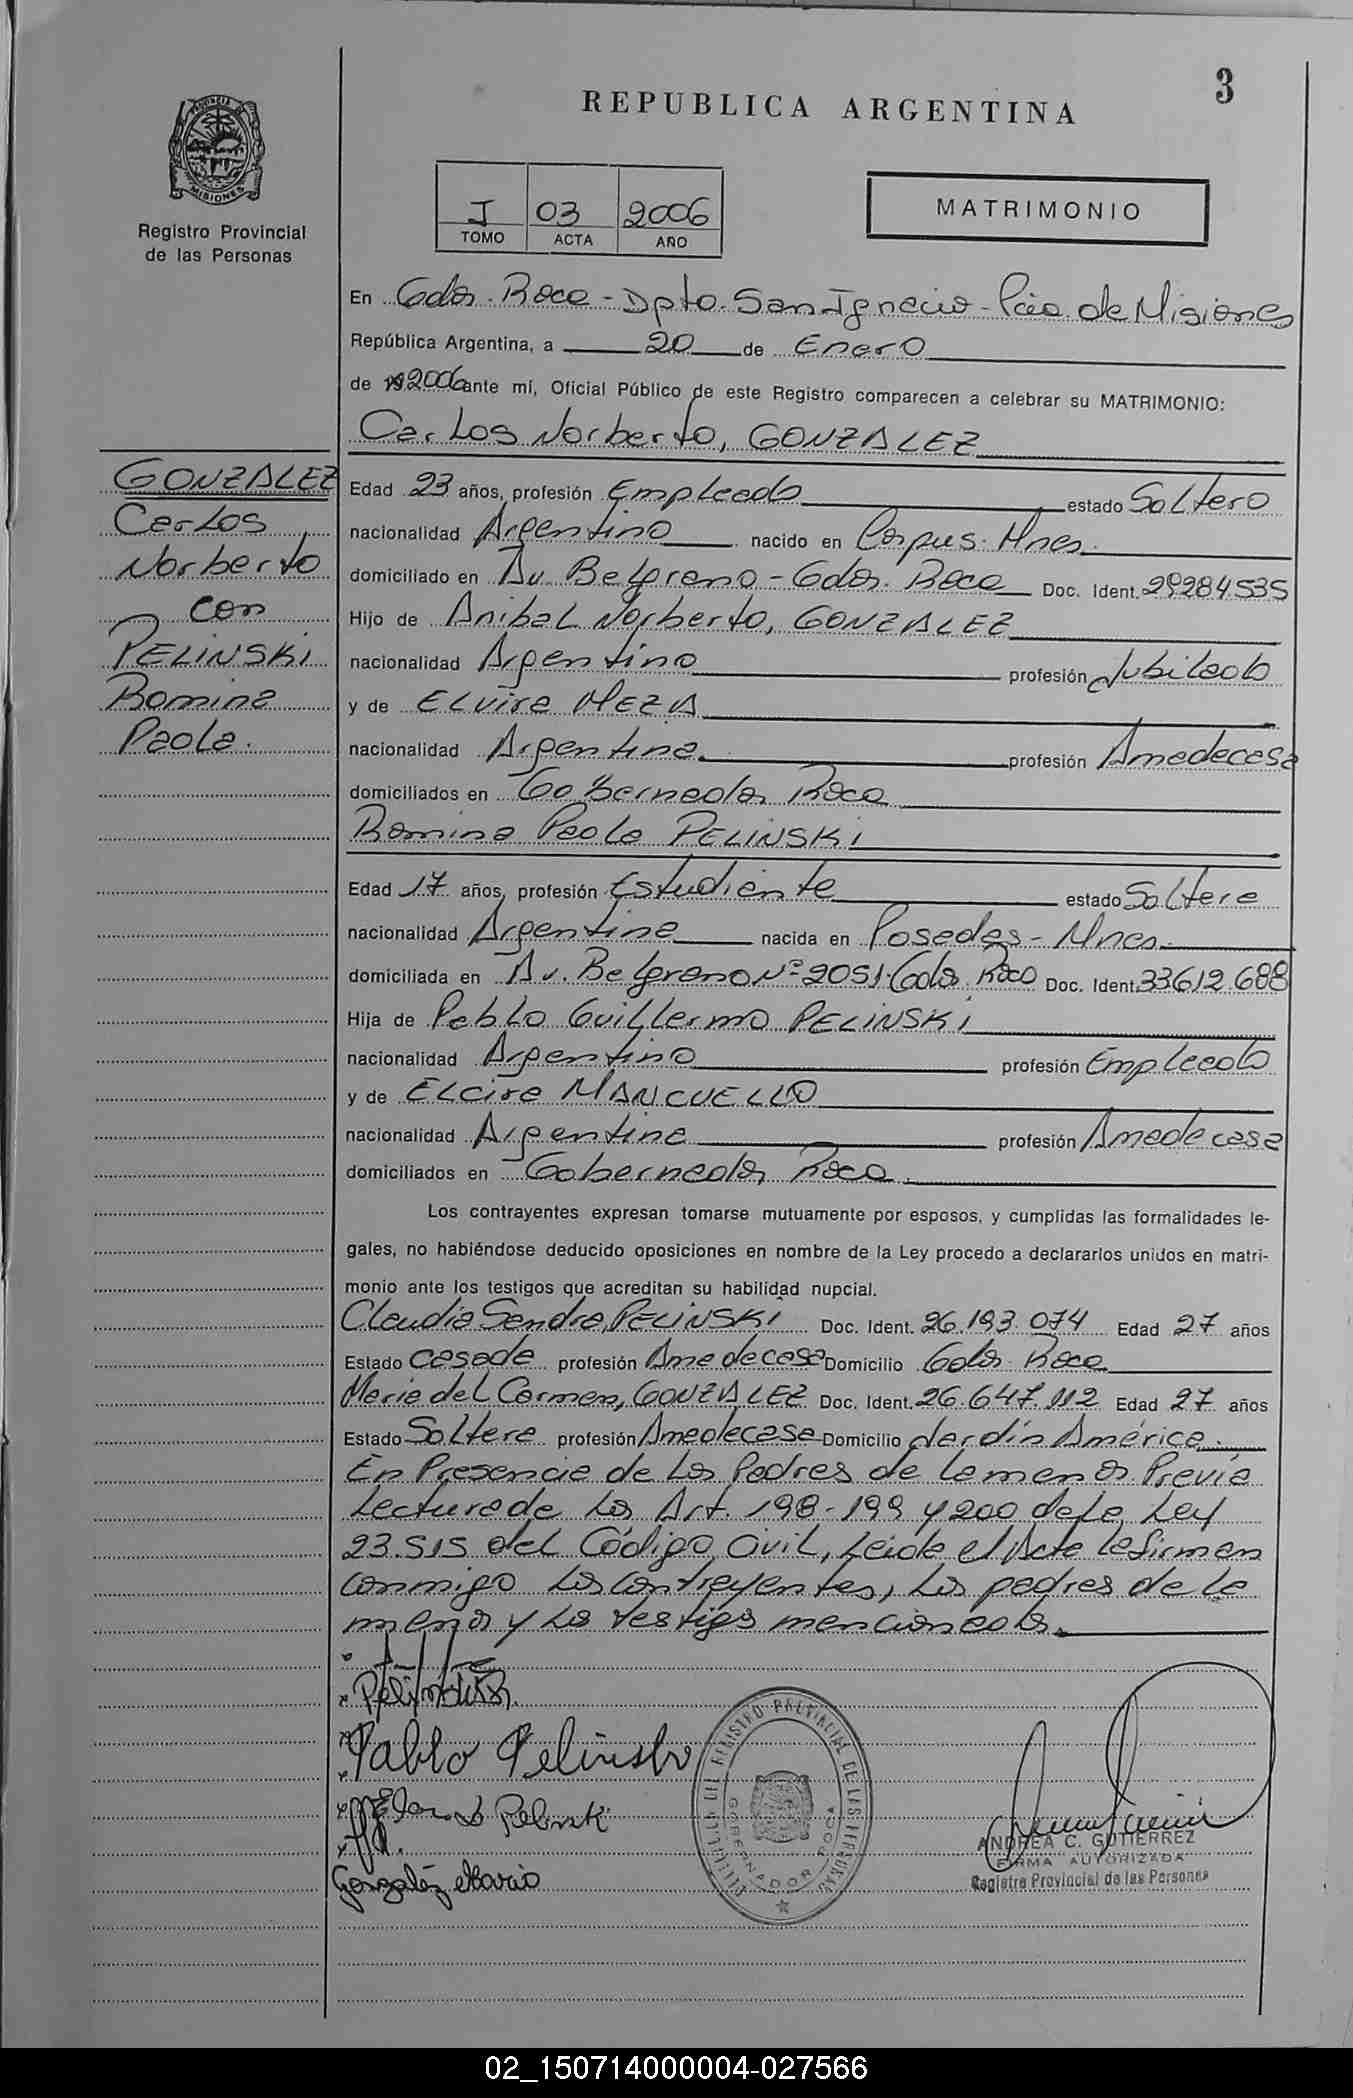 3
REPUBLICA ARGENTINA
PROVINCIA DE MISIONES
Registro Provincial
de las Personas
I 03 2006
TOMO ACTA AÑO
MATRIMONIO
En Gdor. Roca - Dpto. San Ignacio - Pcia. de Misiones
República Argentina, a 20 de Enero
de 2006 ante mí, Oficial Público de este Registro comparecen a celebrar su MATRIMONIO:
Carlos Norberto, GONZALEZ
GONZALEZ
Carlos
Norberto
con
PELINSKI
Romina
Paola.
Edad 23 años, profesión Empleado estado Soltero
nacionalidad Argentino nacido en Corpus. Mnes.
domiciliado en Av. Belgrano - Gdor. Roca Doc. Ident. 29284535
Hijo de Anibal Norberto, GONZALEZ
nacionalidad Argentino profesión Jubilado
y de Elvira MEZA
nacionalidad Argentina profesión Amadecasa
domiciliados en Gobernador Roca
Romina Paola PELINSKI
Edad 17 años, profesión Estudiante estado Soltera
nacionalidad Argentina nacida en Posadas - Mnes.
domiciliada en Av. Belgrano Nº 2051. Gdor. Roca Doc. Ident. 33.612.688
Hija de Pablo Guillermo PELINSKI
nacionalidad Argentino profesión Empleado
y de Elcira MANCUELLO
nacionalidad Argentina profesión Amadecasa
domiciliados en Gobernador Roca.
Los contrayentes expresan tomarse mutuamente por esposos, y cumplidas las formalidades le-
gales, no habiéndose deducido oposiciones en nombre de la Ley procedo a declararlos unidos en matri-
monio ante los testigos que acreditan su habilidad nupcial.
Claudia Sandra, PELINSKI Doc. Ident. 26.193.074 Edad 27 años
Estado Casada profesión Amadecasa Domicilio Gdor. Roca
Maria del Carmen, GONZALEZ Doc. Ident. 26.647.112 Edad 27 años
Estado Soltera profesión Amadecasa Domicilio Jardín América.
En Presencia de los Padres de la menor Previa
Lectura de los Art. 198-199 y 200 de la Ley
23.515 del Código Civil, Leída el Acta la firman
conmigo los contrayentes, los padres de la
menor y los testigos mencionados.
Pablo Pelinski
Pelinski
González María
REGISTRO PROVINCIAL DE LAS PERSONAS
GOBERNADOR ROCA
ANDREA C. GUTIERREZ
FIRMA AUTORIZADA
Registro Provincial de las Personas
02_150714000004-027566